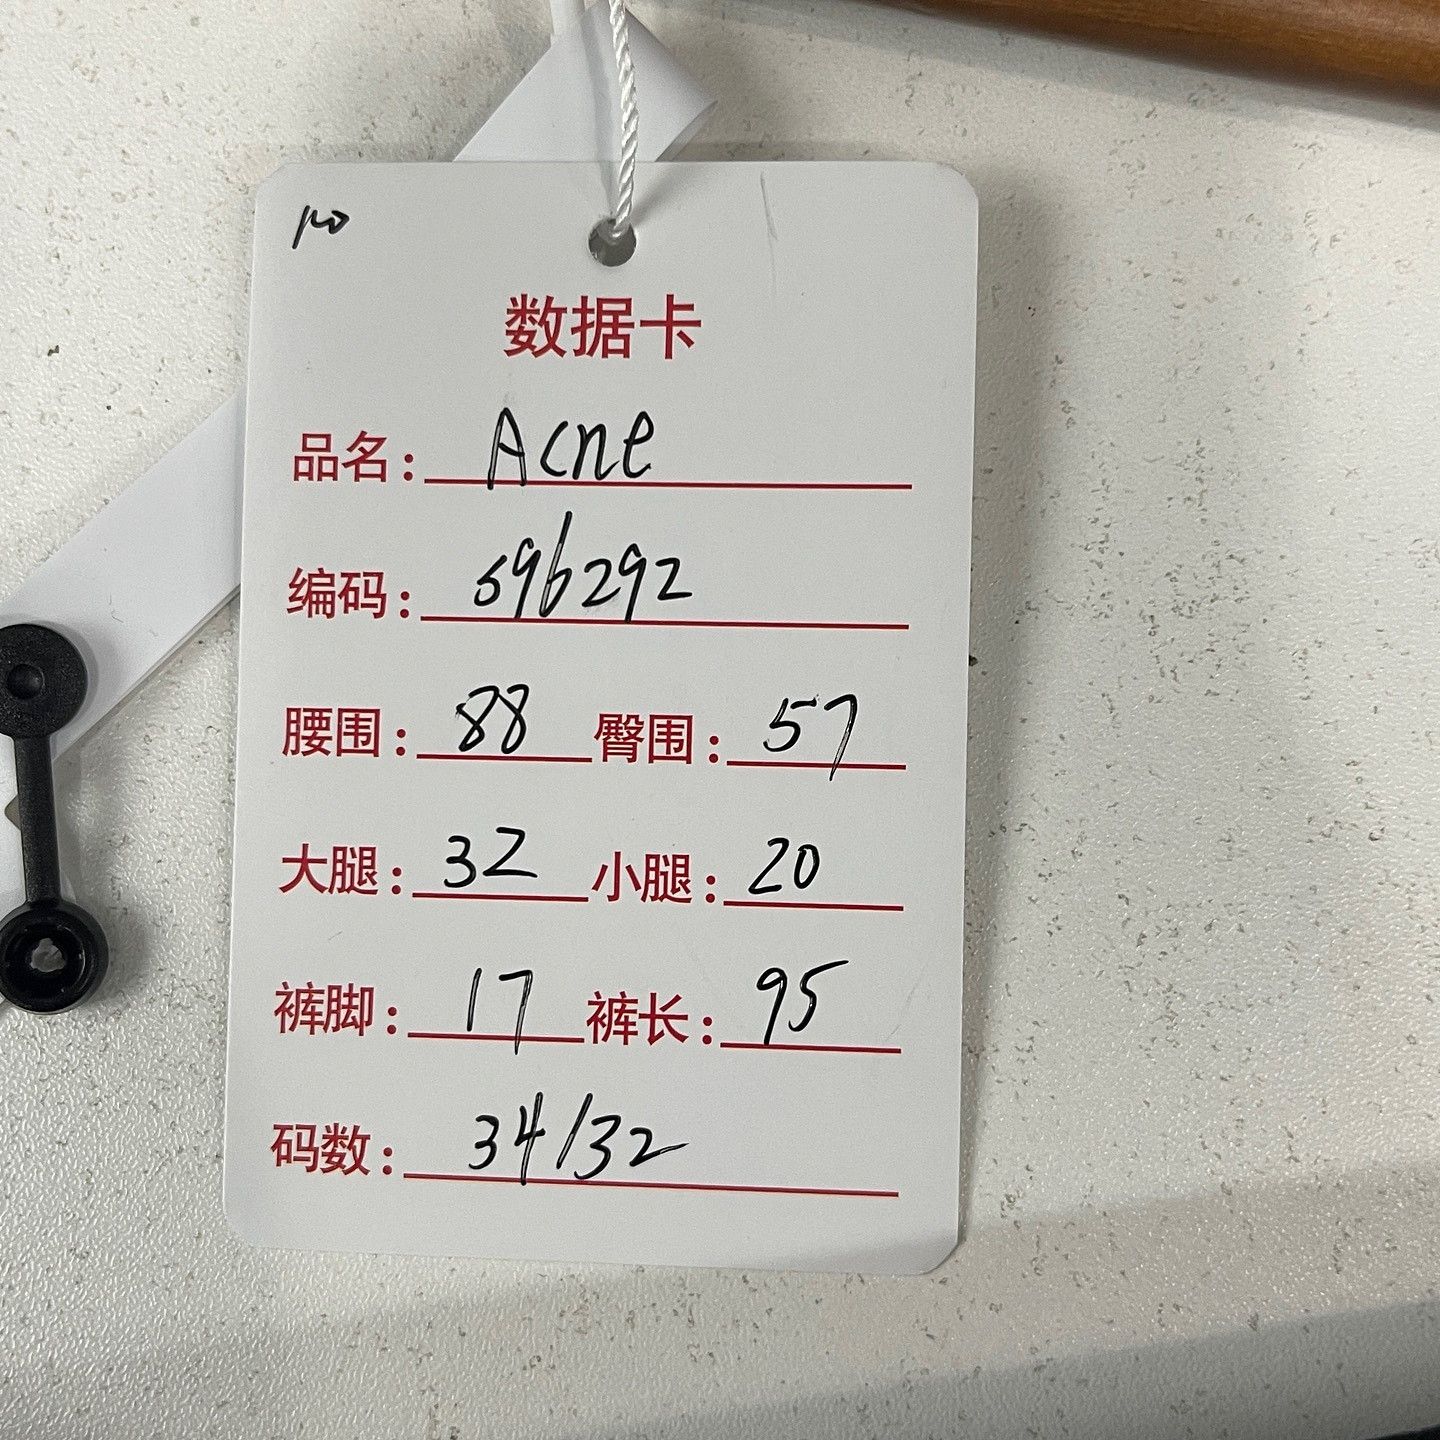 数据卡
品名: Acne
编码: 596292
腰围: 88 臀围: 57
大腿: 32 小腿: 20
裤脚: 17 裤长: 95
码数: 34/32